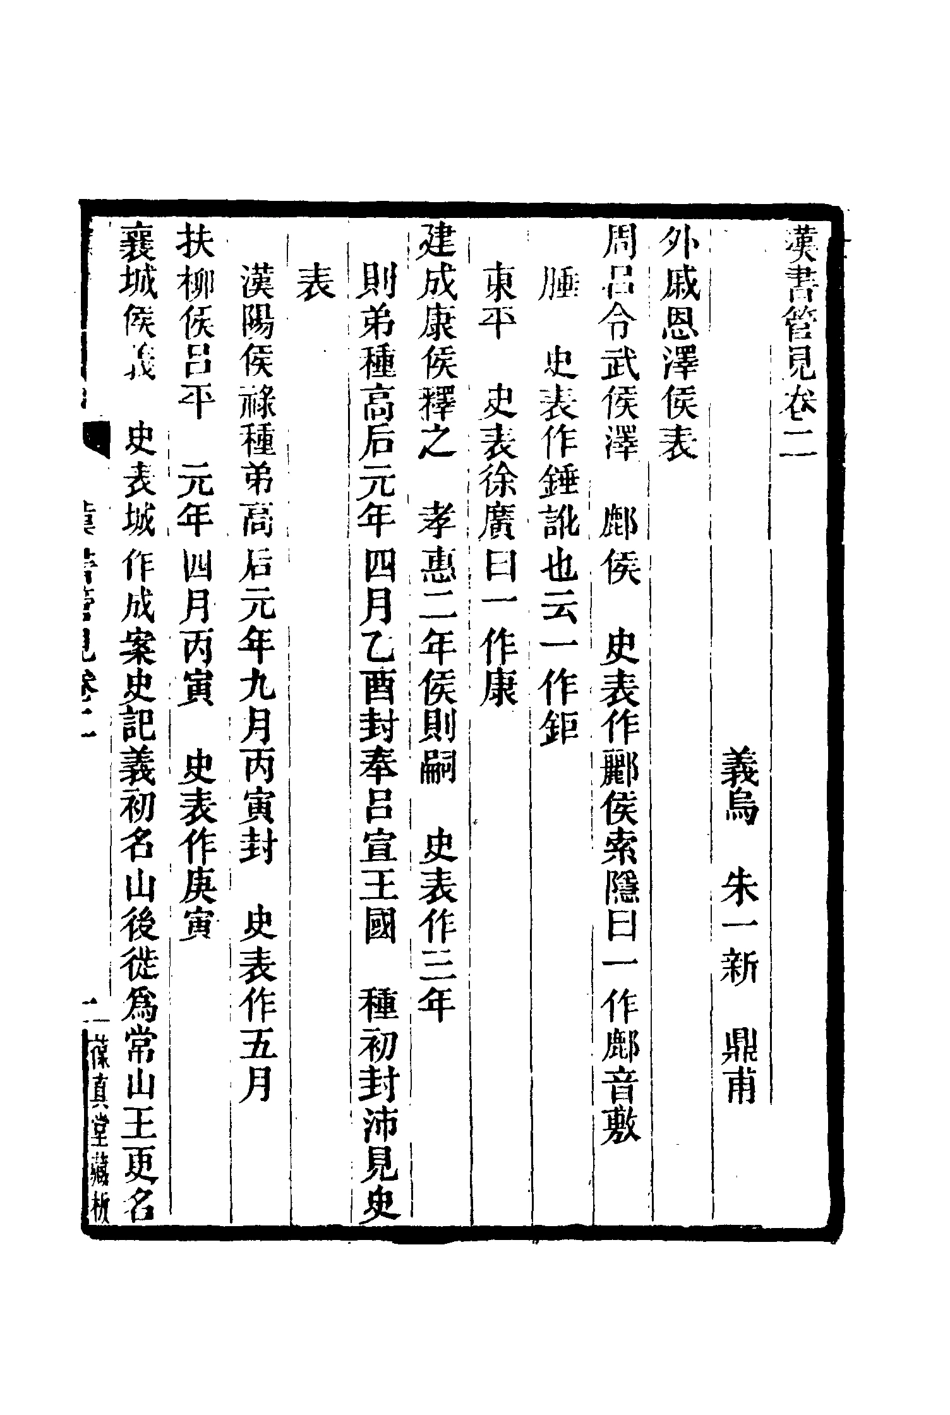 漢書管見卷二
義烏 朱一新 鼎甫
外戚恩澤侯表
周呂令武侯澤 鄜侯 史表作酈侯索隱曰一作鄜音敷
腄 史表作錘訛也云一作鉅
東平 史表徐廣曰一作康
建成康侯釋之 孝惠二年侯則嗣 史表作三年
則弟種高后元年四月乙酉封奉呂宣王國 種初封沛見史
表
漢陽侯祿種弟高后元年九月丙寅封 史表作五月
扶柳侯呂平 元年四月丙寅 史表作庚寅
襄城侯義 史表城作成案史記義初名山後徙爲常山王更名
漢書管見卷二
葆真堂藏板